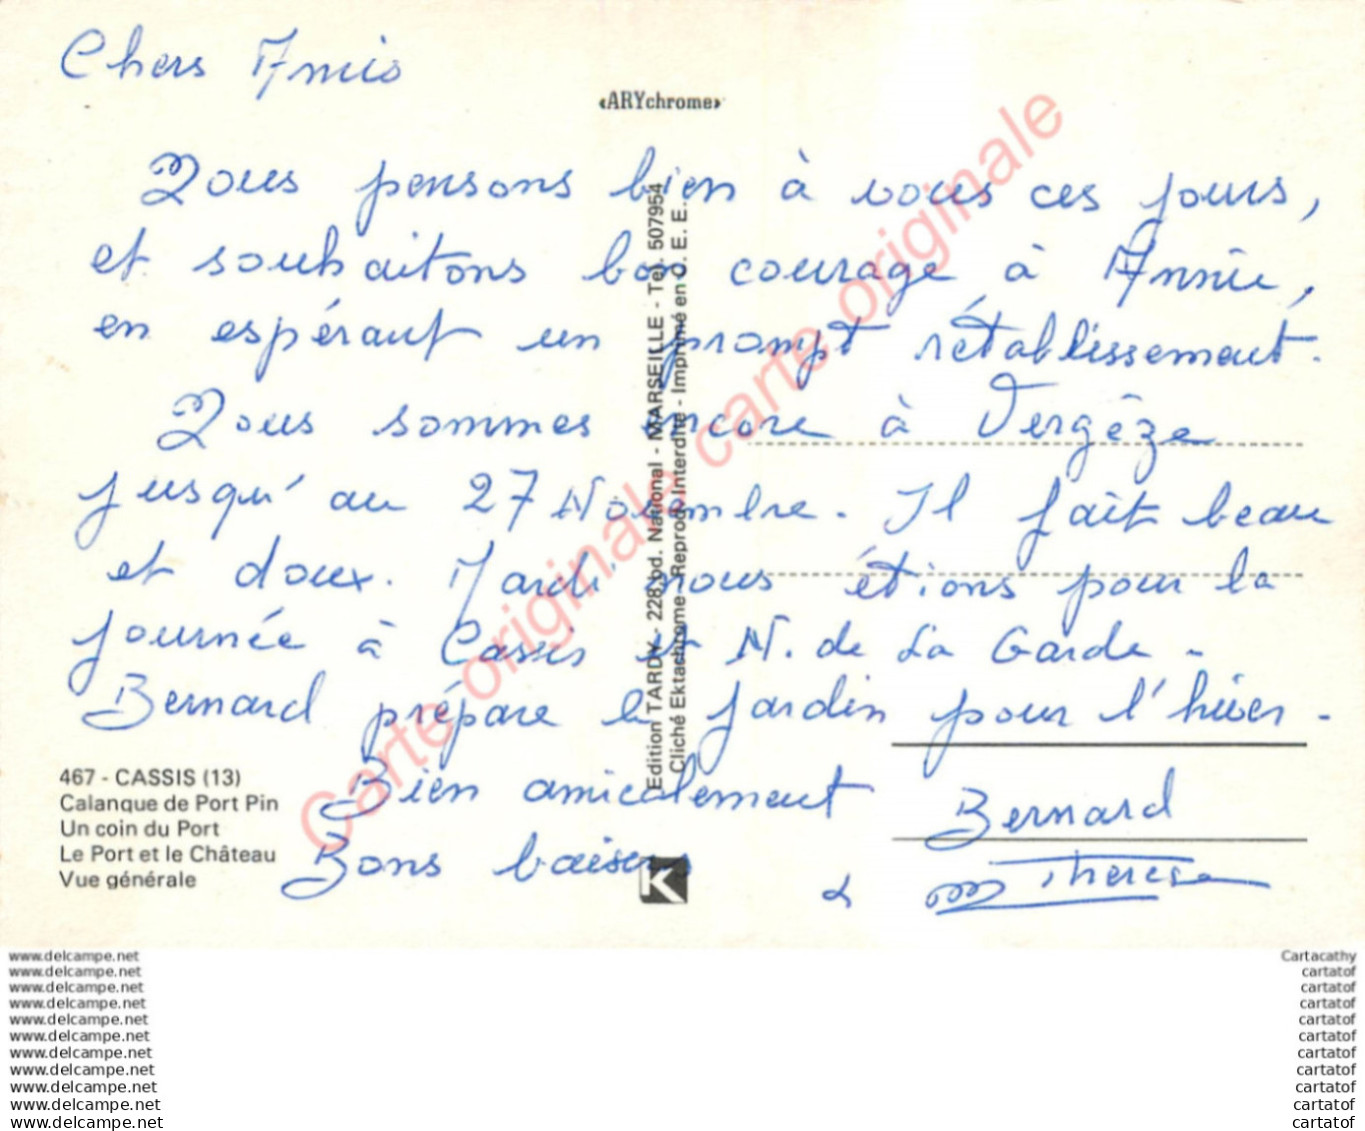 Chers Amis
«ARYchrome»
Nous pensons bien à vous ces jours,
et souhaitons bon courage à Annie,
en espérant un prompt rétablissement.
Nous sommes encore à Vergèze
jusqu'au 27 Novembre. Il fait beau
et doux. Mardi nous étions pour la
journée à Cassis et N. de La Garde.
Bernard prépare le jardin pour l'hiver.
Bien amicalement Bernard
Bons baisers & M Thérèse
467 - CASSIS (13)
Calanque de Port Pin
Un coin du Port
Le Port et le Château
Vue générale
Edition TARDY - 228, bd. National - MARSEILLE - Tél. 507954
Cliché Ektachrome - Reprod. Interdite - Imprimé en C. E. E.
K
Carte originale carte originale
www.delcampe.net
www.delcampe.net
www.delcampe.net
www.delcampe.net
www.delcampe.net
www.delcampe.net
www.delcampe.net
www.delcampe.net
www.delcampe.net
www.delcampe.net
www.delcampe.net
Cartacathy
cartatof
cartatof
cartatof
cartatof
cartatof
cartatof
cartatof
cartatof
cartatof
cartatof